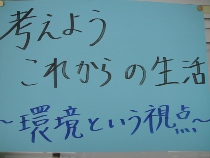 考えよう
これからの生活
～環境という視点～